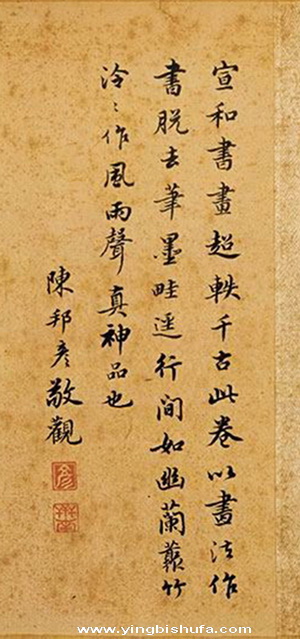 宣和書畫超軼千古此卷以畫法作
書脫去筆墨畦逕行間如幽蘭叢竹
泠〻作風雨聲真神品也
陳邦彥敬觀
www.yingbishufa.com